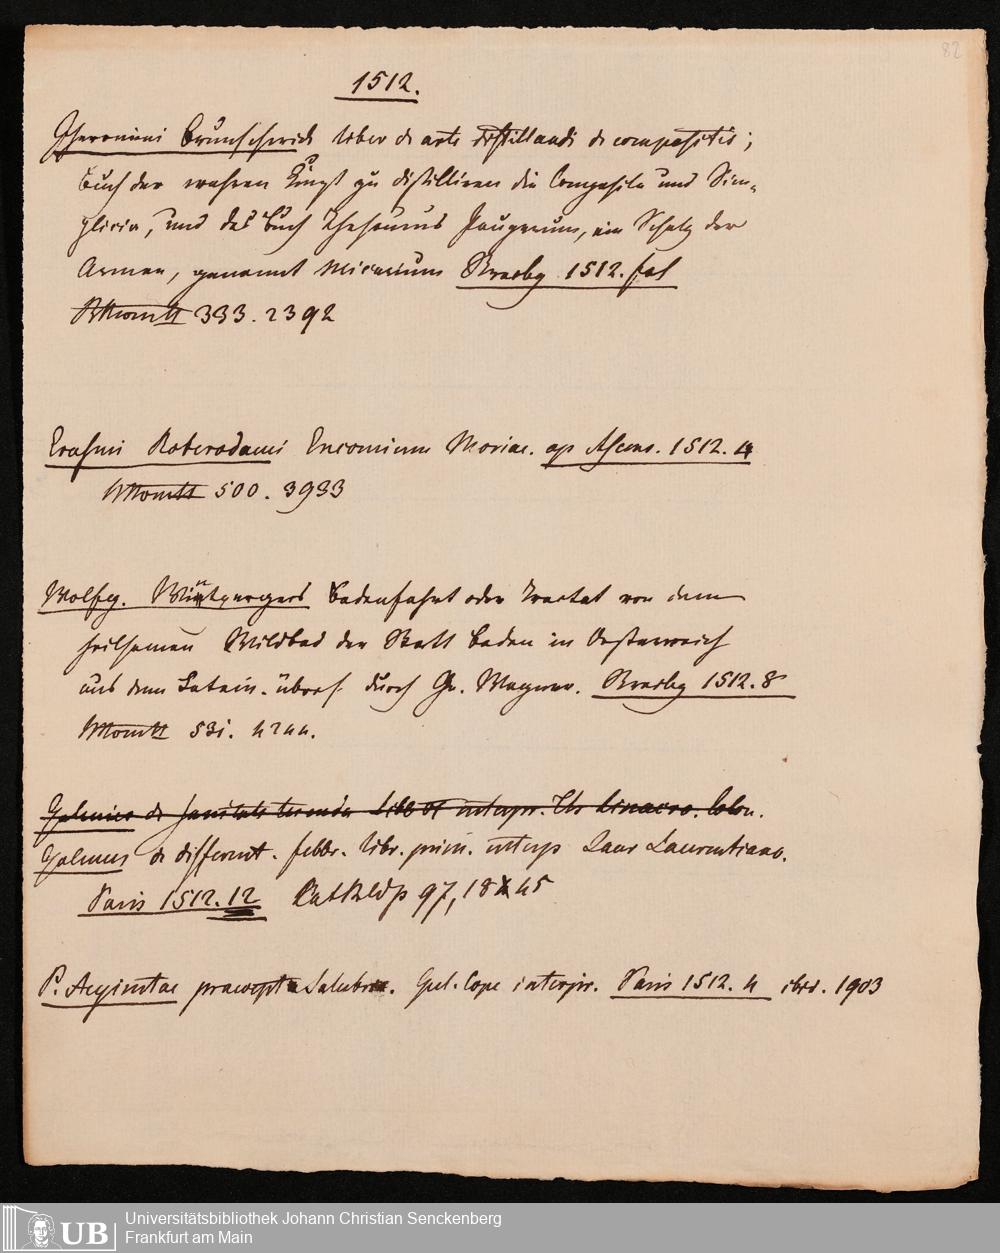 82
1512.
Jheronimi Brunschwick liber de arte distillandi de compositis;
Buch der wahren Kunst zu distilliren die Composita und Sim-
plicia, und das Buch Thesaurus Pauperum, ein Schatz der
Armen, genannt Micarium Strasbg 1512. fol
333. 2392
Erasmi Roterodami Encomium Moriae. ap Ascens. 1512. 4
500. 3933
Wolfg. Wintpergers Badenfahrt oder Tractat von dem
heilsamen Wildbad der Statt Baden in Oesterreich
aus dem Latein. übers. durch Gr. Wagner. Strasbg 1512. 8
531. 4244.
Galenus de sanitate tuenda Libb VI interpr. Th Linacro. Colon.
Galenus de different. febbr. libr. prim. interp Laur Laurentiano.
Paris 1512. 12 97, 18 45
P. Aeginetae praecepta Salubria. Guil. Cope interpr. Paris 1512. 4 ibid. 1903
UB
Universitätsbibliothek Johann Christian Senckenberg
Frankfurt am Main